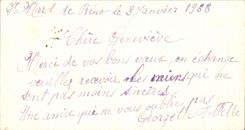 St Mard de Réno le 3 Janvier 1938
Chère Geneviève
Merci de vos bons vœux, en échange
veuillez recevoir les miens qui ne
sont pas moins sincères.
Une amie qui ne vous oublie pas
Georgette